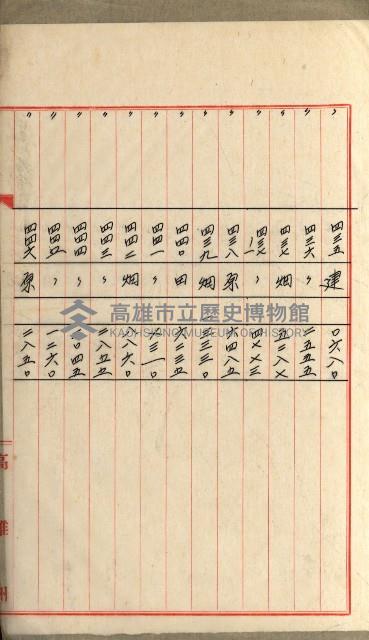 〃 四三五 建 〇六八〇
〃 四三六 〃 二五五五
〃 四三七 畑 五二八七
〃 四三七ノ一 〃 四七七三
〃 四三八 原 六四八五
〃 四三九 畑 三三〇
〃 四四〇 田 六二三五
〃 四四一 〃 三一〇
〃 四四二 畑 〇八六〇
〃 四四三 〃 二八五五
〃 四四四 〃 〇四五
〃 四四五 〃 一二六〇
〃 四四六 原 二八五〇
高雄州
高雄市立歷史博物館
KAOHSIUNG MUSEUM OF HISTORY